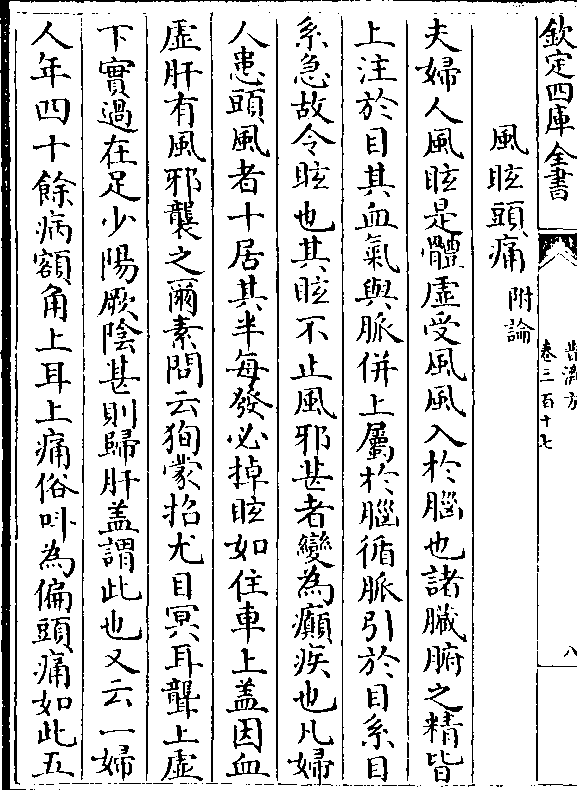 欽定四庫全書
普濟方
卷三百十七
八
風眩頭痛附論
夫婦人風眩是體虛受風風入於腦也諸臟腑之精皆
上注於目其血氣與脈併上屬於腦循脈引於目系目
系急故令眩也其眩不止風邪甚者變為癲疾也凡婦
人患頭風者十居其半每發必掉眩如住車上盖因血
虛肝有風邪襲之爾素問云狥蒙招尤目冥耳聾上虛
下實過在足少陽厥陰甚則歸肝盖謂此也又云一婦
人年四十餘病額角上耳上痛俗呌為偏頭痛如此五